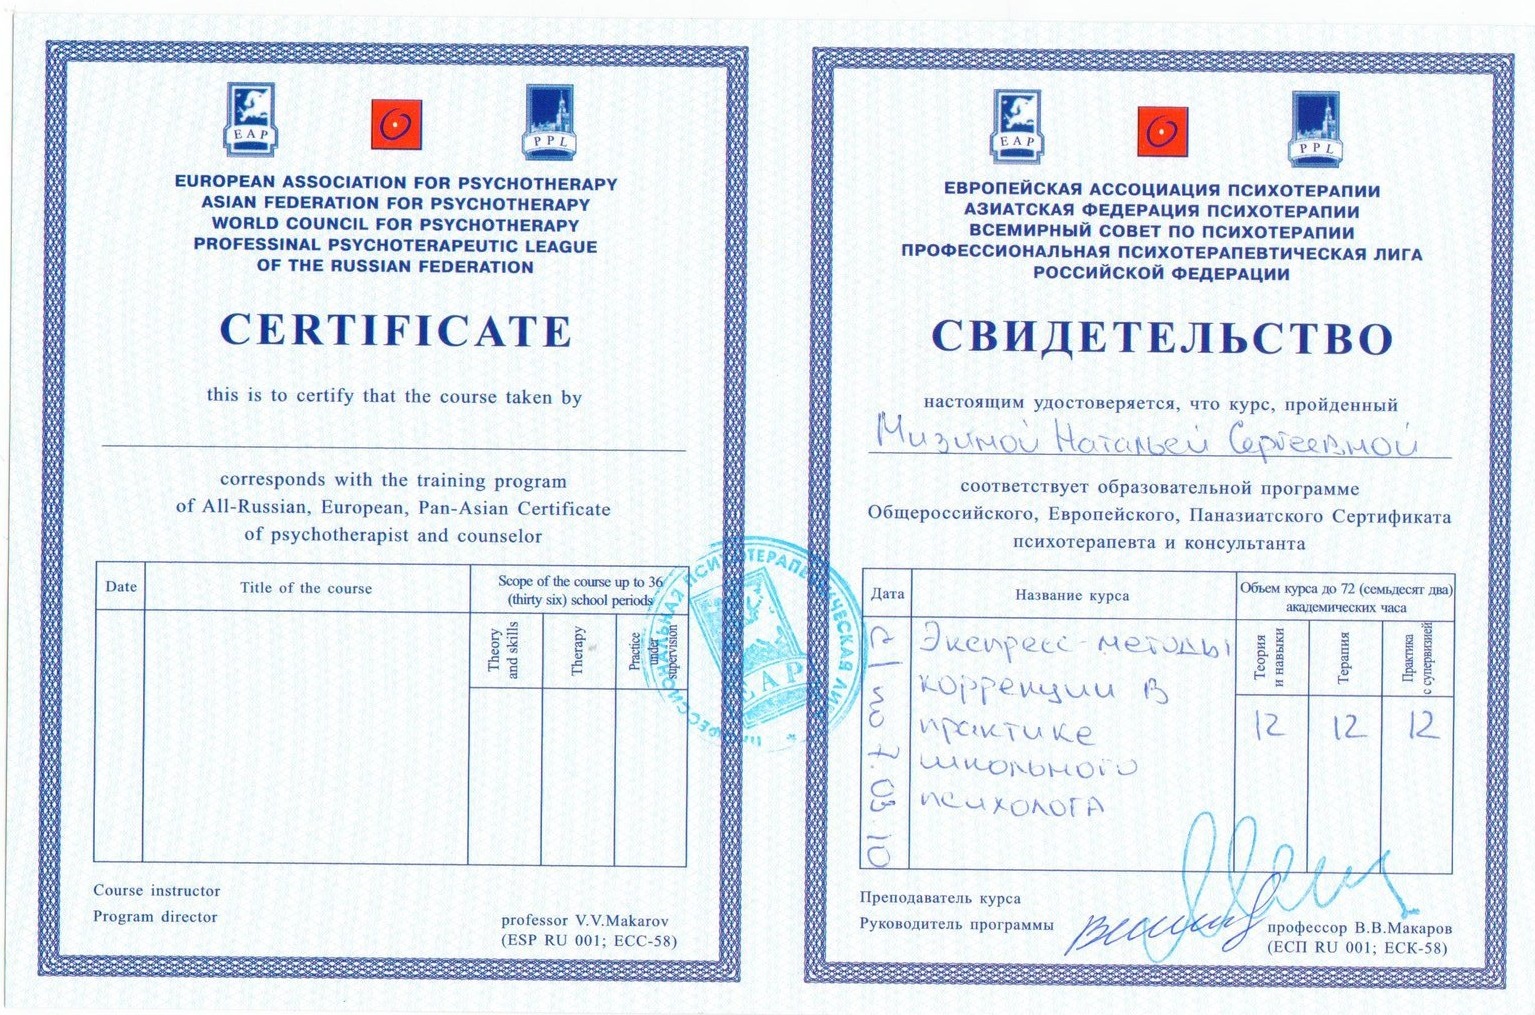 EAP
PPL
EUROPEAN ASSOCIATION FOR PSYCHOTHERAPY
ASIAN FEDERATION FOR PSYCHOTHERAPY
WORLD COUNCIL FOR PSYCHOTHERAPY
PROFESSINAL PSYCHOTERAPEUTIC LEAGUE
OF THE RUSSIAN FEDERATION
CERTIFICATE
this is to certify that the course taken by
corresponds with the training program
of All-Russian, European, Pan-Asian Certificate
of psychotherapist and counselor
Date
Title of the course
Scope of the course up to 36
(thirty six) school periods
Theory
and skills
Therapy
Practice
under
supervision
Course instructor
Program director
professor V.V.Makarov
(ESP RU 001; ECC-58)
EAP
EAP
PPL
ЕВРОПЕЙСКАЯ АССОЦИАЦИЯ ПСИХОТЕРАПИИ
АЗИАТСКАЯ ФЕДЕРАЦИЯ ПСИХОТЕРАПИИ
ВСЕМИРНЫЙ СОВЕТ ПО ПСИХОТЕРАПИИ
ПРОФЕССИОНАЛЬНАЯ ПСИХОТЕРАПЕВТИЧЕСКАЯ ЛИГА
РОССИЙСКОЙ ФЕДЕРАЦИИ
СВИДЕТЕЛЬСТВО
настоящим удостоверяется, что курс, пройденный
Мизиной Натальей Сергеевной
соответствует образовательной программе
Общероссийского, Европейского, Паназиатского Сертификата
психотерапевта и консультанта
Дата
Название курса
Объем курса до 72 (семьдесят два)
академических часа
Теория
и навыки
Терапия
Практика
с супервизией
Экспресс-методы
коррекции в
практике
школьного
психолога
12
12
12
Преподаватель курса
Руководитель программы
профессор В.В.Макаров
(ЕСП RU 001; ЕСК-58)